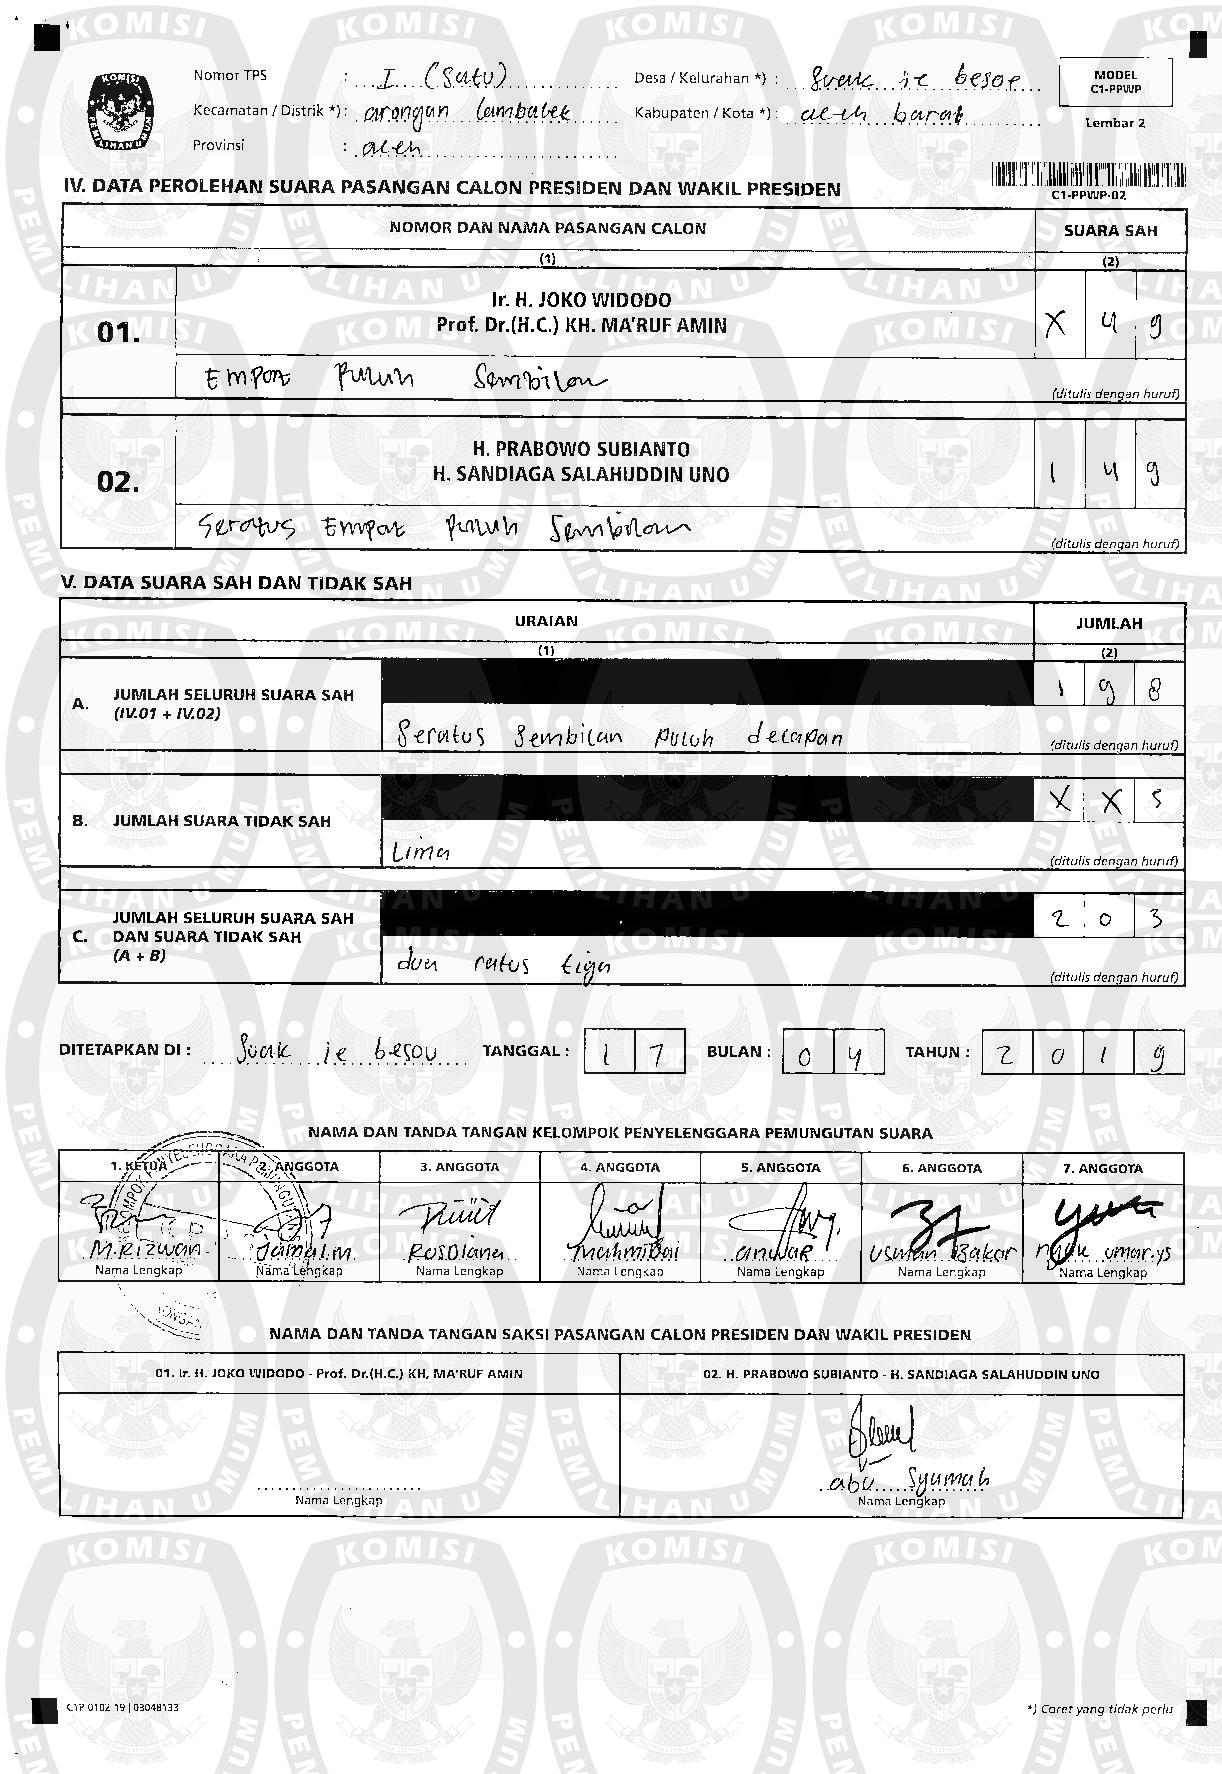 Nomor TPS : I (Satu)
Desa / Kelurahan *) : Suak ie besar
MODEL C1-PPWP
Kecamatan / Distrik *) : arongan lambalek
Kabupaten / Kota *) : aceh barat
Lembar 2
Provinsi : aceh
C1-PPWP-02
IV. DATA PEROLEHAN SUARA PASANGAN CALON PRESIDEN DAN WAKIL PRESIDEN
NOMOR DAN NAMA PASANGAN CALON SUARA SAH
(1) (2)
01. Ir. H. JOKO WIDODO
Prof. Dr.(H.C.) KH. MA'RUF AMIN X 4 9
Empat Puluh Sembilan
(ditulis dengan huruf)
02. H. PRABOWO SUBIANTO
H. SANDIAGA SALAHUDDIN UNO 1 4 9
Seratus Empat Puluh Sembilan
(ditulis dengan huruf)
V. DATA SUARA SAH DAN TIDAK SAH
URAIAN JUMLAH
(1) (2)
A. JUMLAH SELURUH SUARA SAH
(IV.01 + IV.02) 1 9 8
Seratus Sembilan puluh delapan
(ditulis dengan huruf)
B. JUMLAH SUARA TIDAK SAH X X 5
Lima
(ditulis dengan huruf)
C. JUMLAH SELURUH SUARA SAH
DAN SUARA TIDAK SAH
(A + B) 2 0 3
dua ratus tiga
(ditulis dengan huruf)
DITETAPKAN DI : Suak ie besou TANGGAL : 1 7 BULAN : 0 4 TAHUN : 2 0 1 9
NAMA DAN TANDA TANGAN KELOMPOK PENYELENGGARA PEMUNGUTAN SUARA
1. KETUA 2. ANGGOTA 3. ANGGOTA 4. ANGGOTA 5. ANGGOTA 6. ANGGOTA 7. ANGGOTA
M.Rizwan Jamal.m. Rosdiana anwar usman Bakar umar.ys
Nama Lengkap Nama Lengkap Nama Lengkap Nama Lengkap Nama Lengkap Nama Lengkap Nama Lengkap
NAMA DAN TANDA TANGAN SAKSI PASANGAN CALON PRESIDEN DAN WAKIL PRESIDEN
01. Ir. H. JOKO WIDODO - Prof. Dr.(H.C.) KH. MA'RUF AMIN 02. H. PRABOWO SUBIANTO - H. SANDIAGA SALAHUDDIN UNO
abu Syumah
Nama Lengkap Nama Lengkap
C1P 0102 19 | 03048133
*) Coret yang tidak perlu